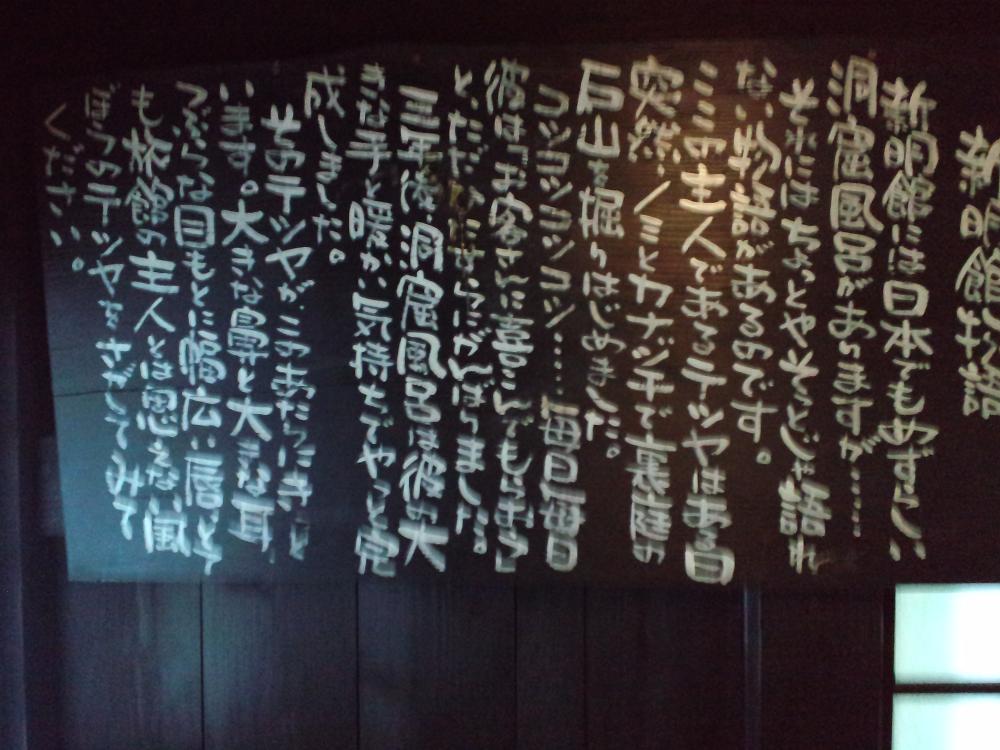 新明館物語
新明館には日本でもめずらしい
洞窟風呂がありますが……
それにはちょっとやそっとじゃ語れ
ない物語があるのです。
ここの主人であるテツヤはある日
突然、ノミとカナヅチで裏庭の
石山を掘りはじめました。
コツコツコツコツ……毎日毎日
彼はお客さんに喜こんでもらおう
と、ただひたすらにがんばりました。
三年後、洞窟風呂は彼の大
きな手と暖かい気持ちでやっと完
成しました。
そのテツヤが、このあたりにきっと
います。大きな鼻と大きな耳、
つぶらな目もとに幅広い唇とて
も旅館の主人とは思えない風
ぼうのテツヤをさがしてみて
ください。